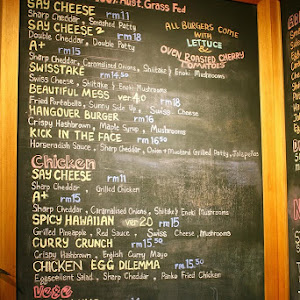 100% Aust. Grass Fed
SAY CHEESE rm11
Sharp Cheddar, Smashed Patty
SAY CHEESE 2 rm18
Double Cheddar, Double Patty
A+ rm15
Sharp Cheddar, Caramelised Onions, Shiitake & Enoki Mushrooms
SWISSTAKE rm14.50
Swiss Cheese, Shiitake & Enoki Mushrooms
BEAUTIFUL MESS ver 4.0 rm18
Fried Portobello, Sunny Side Up, Swiss Cheese
HANGOVER BURGER rm16
Crispy Hashbrown, Maple Syrup, Mushrooms
KICK IN THE FACE rm16.50
Horseradish Sauce, Sharp Cheddar, Onion + Mustard Grilled Patty, Jalapeños
ALL BURGERS COME
WITH
LETTUCE
&
OVEN ROASTED CHERRY
TOMATOES
Chicken
SAY CHEESE rm11
Sharp Cheddar, Grilled Chicken
A+ rm15
Sharp Cheddar, Caramelised Onions, Shiitake & Enoki Mushrooms
SPICY HAWAIIAN ver 2.0 rm15
Grilled Pineapple, Red Sauce, Swiss Cheese, Mushrooms
CURRY CRUNCH rm15.50
Crispy Hashbrown, English Curry Mayo
CHICKEN EGG DILEMMA rm15.50
Eggscellent Salad, Sharp Cheddar, Panko Fried Chicken
Vege